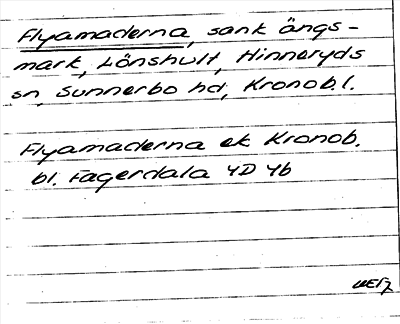 Flyamaderna, sank ängs-
mark, Lönshult, Hinneryds
sn, Sunnerbo hd, Kronob.l.
Flyamaderna ek Kronob.
bl. Fagerdala 4D 4b